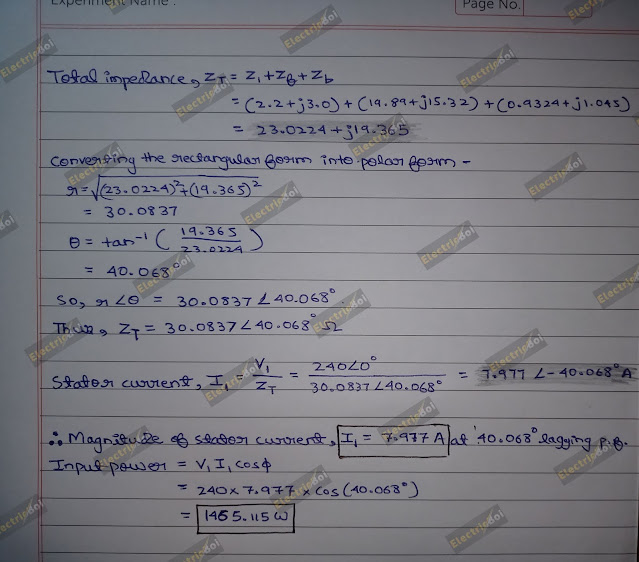 Experiment Name :
Page No.
Total impedance, Z_T = Z₁+Z_f+Z_b
= (2.2+j3.0) + (19.89+j15.32) + (0.9324+j1.045)
= 23.0224 + j19.365
converting the rectangular form into polar form -
r = √(23.0224)²+(19.365)²
= 30.0837
θ = tan⁻¹ ( 19.365 / 23.0224 )
= 40.068°
So, r∠θ = 30.0837∠40.068°.
Thus, Z_T = 30.0837∠40.068° Ω
Stator current, I₁ = V₁/Z_T = 240∠0° / 30.0837∠40.068° = 7.977 ∠-40.068° A
∴ Magnitude of stator current, I₁ = 7.977 A at 40.068° lagging p.f.
Input power = V₁ I₁ cosϕ
= 240 × 7.977 × cos (40.068°)
= 1465.115 W
Electricdol